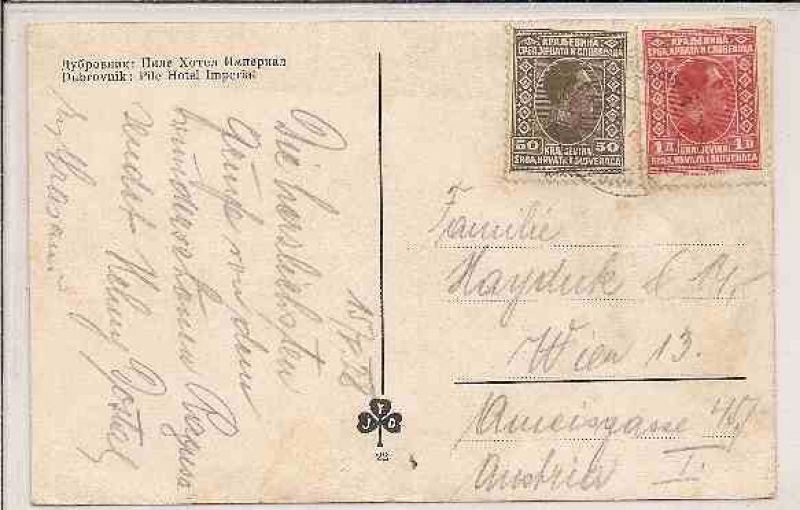 Дубровник: Пиле Хотел Империал
Dubrovnik: Pile Hotel Imperial
КРАЉЕВИНА
СРБА, ХРВАТА И СЛОВЕНАЦА
50 50
KRALJEVINA
SRBA, HRVATA I SLOVENACA
КРАЉЕВИНА
СРБА, ХРВАТА И СЛОВЕНАЦА
1Д 1D
KRALJEVINA
SRBA, HRVATA I SLOVENACA
Die herzlichsten
Grüße von dem
wunderschönen Ragusa
sendet
15/7. 28
J F D
22
Familie
Hayduk
Wien 13.
Ameisgasse 45
Austria I.